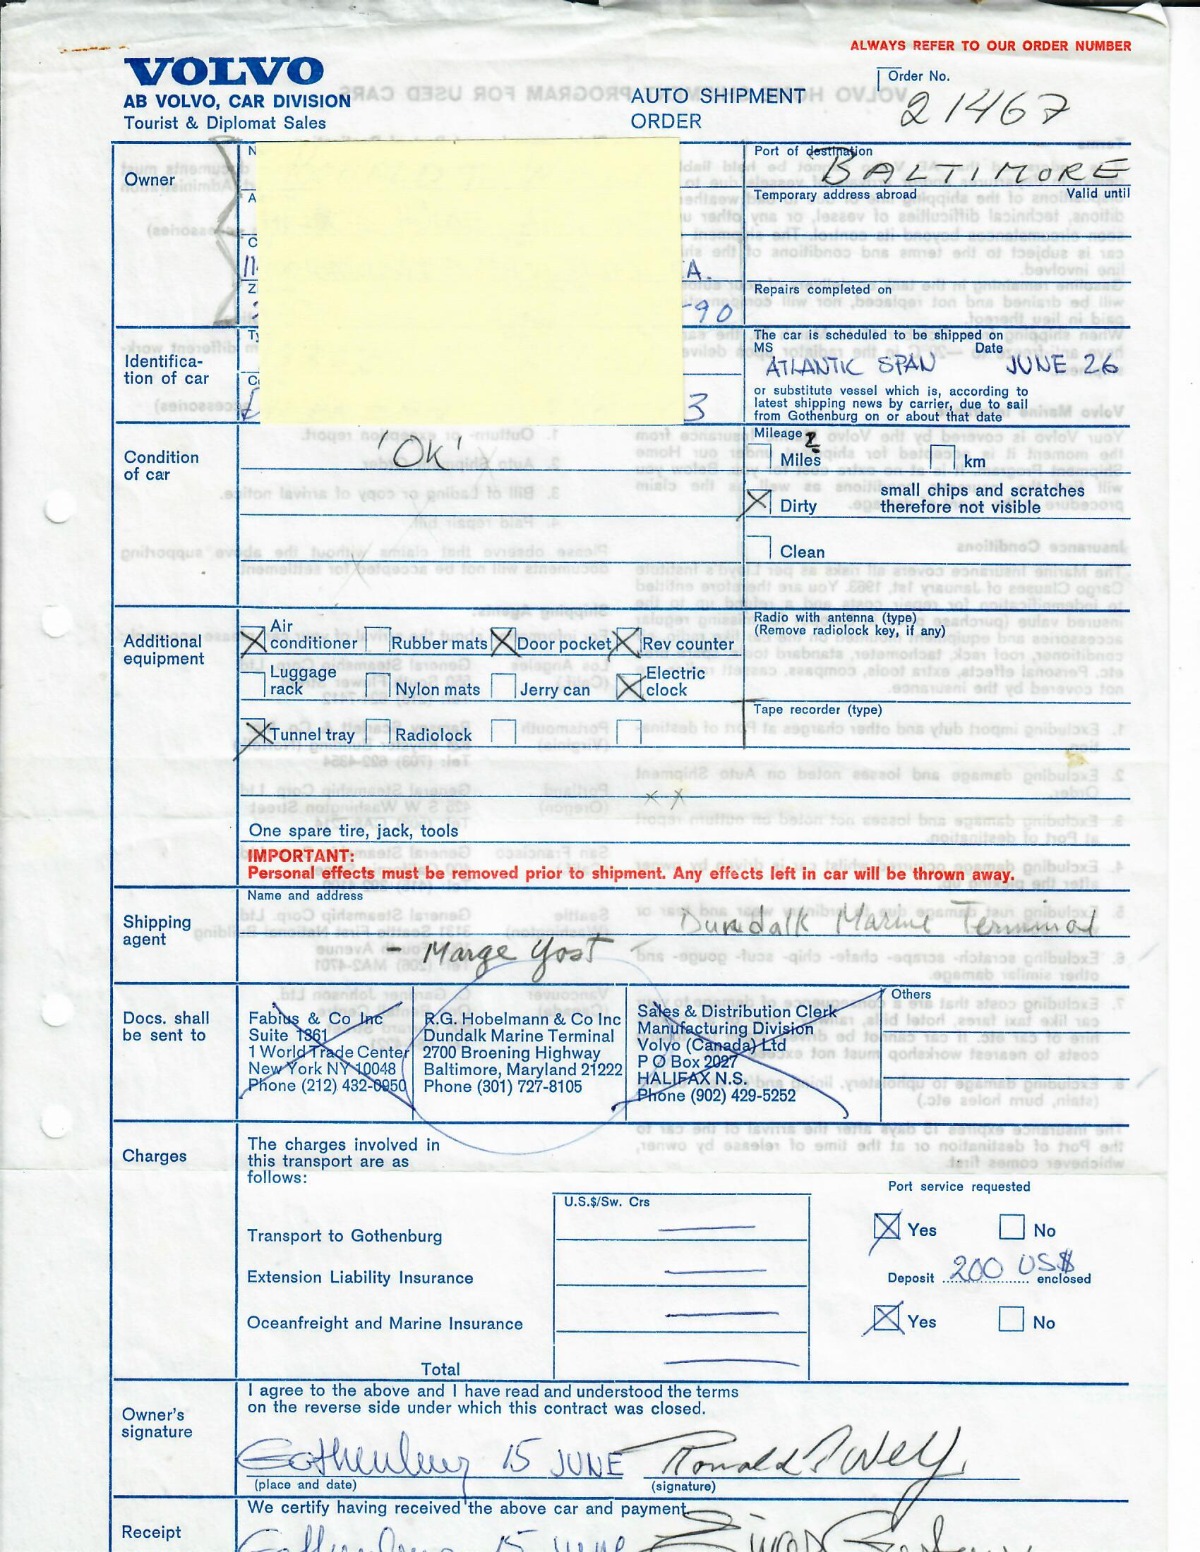 ALWAYS REFER TO OUR ORDER NUMBER
VOLVO
AB VOLVO, CAR DIVISION
Tourist & Diplomat Sales
AUTO SHIPMENT
ORDER
Order No.
21467
Owner
Port of destination
BALTIMORE
Temporary address abroad Valid until
A.
Repairs completed on
-90
Identifica-
tion of car
The car is scheduled to be shipped on
MS Date
ATLANTIC SPAN JUNE 26
or substitute vessel which is, according to
latest shipping news by carrier, due to sail
from Gothenburg on or about that date
3
Condition
of car
'OK'
Mileage ?
Miles km
Dirty small chips and scratches
therefore not visible
Clean
Additional
equipment
Air
conditioner Rubber mats Door pocket Rev counter
Luggage
rack Nylon mats Jerry can Electric
clock
Tunnel tray Radiolock
Radio with antenna (type)
(Remove radiolock key, if any)
Tape recorder (type)
x x
One spare tire, jack, tools
IMPORTANT:
Personal effects must be removed prior to shipment. Any effects left in car will be thrown away.
Shipping
agent
Name and address
Dundalk Marine Terminal
- Marge Yost
Docs. shall
be sent to
Fabius & Co Inc
Suite 1361
1 World Trade Center
New York NY 10048
Phone (212) 432-0950
R.G. Hobelmann & Co Inc
Dundalk Marine Terminal
2700 Broening Highway
Baltimore, Maryland 21222
Phone (301) 727-8105
Sales & Distribution Clerk
Manufacturing Division
Volvo (Canada) Ltd
P O Box 2027
HALIFAX N.S.
Phone (902) 429-5252
Others
Charges
The charges involved in
this transport are as
follows:
U.S.$/Sw. Crs
Transport to Gothenburg
Extension Liability Insurance
Oceanfreight and Marine Insurance
Total
Port service requested
Yes No
Deposit 200 US$ enclosed
Yes No
Owner's
signature
I agree to the above and I have read and understood the terms
on the reverse side under which this contract was closed.
Gothenburg 15 JUNE
(place and date) (signature)
Receipt
We certify having received the above car and payment
Gothenburg 15 June